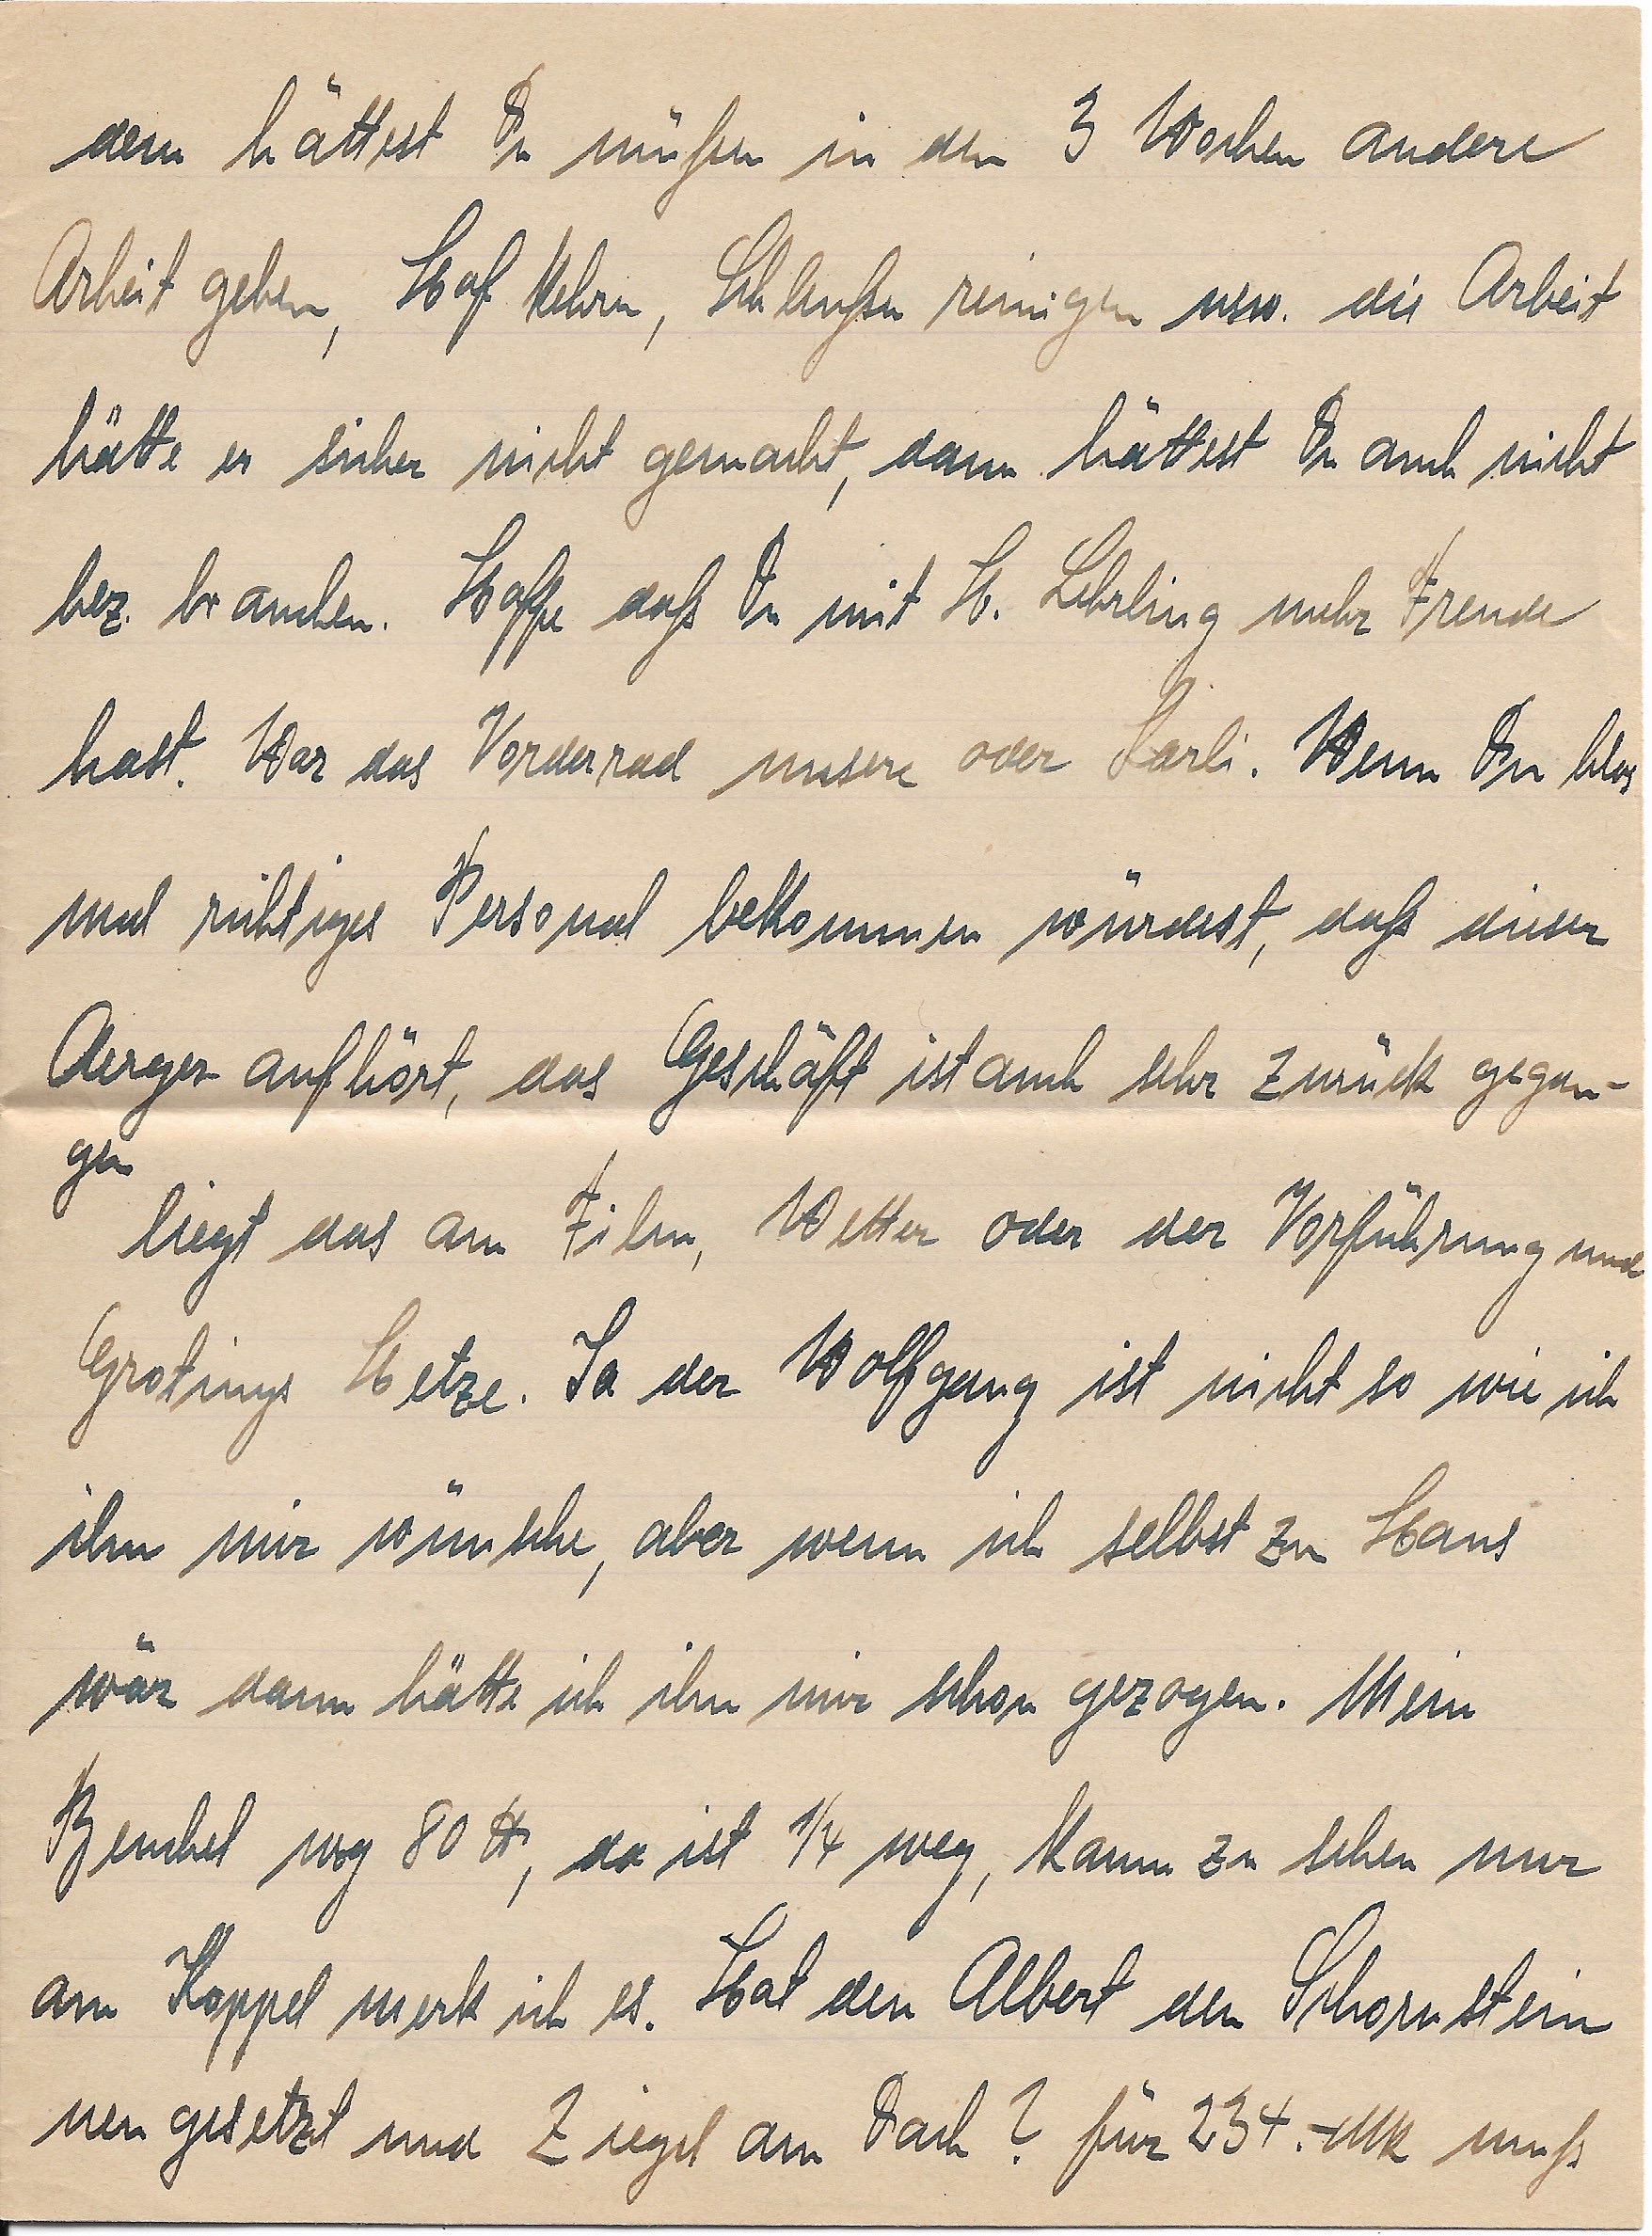 dem hättest Du müßen in den 3 Wochen andere
Arbeit geben, Hof kehren, Schleußen reinigen usw. die Arbeit
hätte er sicher nicht gemacht, dann hättest Du auch nicht
bez. brauchen. Hoffe daß Du mit H. Lehrling mehr Freude
hast. War das Vorderrad unsere oder Karli. Wenn Du blos
mal richtiges Personal bekommen würdest, daß dieser
Aerger aufhört, das Geschäft ist auch sehr zurück gegan-
gen
liegt das am Film, Wetter oder der Vorführung und
Grotings Hetze. Ja der Wolfgang ist nicht so wie ich
ihn mir wünsche, aber wenn ich selbst zu Haus
wär dann hätte ich ihn mir schon gezogen. Mein
Beuchel wog 80 ℔, da ist 1/4 weg, kaum zu sehen nur
am Koppel merk ich es. Hat den Albert den Schornstein
neu gesetzt und Ziegel am Dach? für 234.- Mk muß